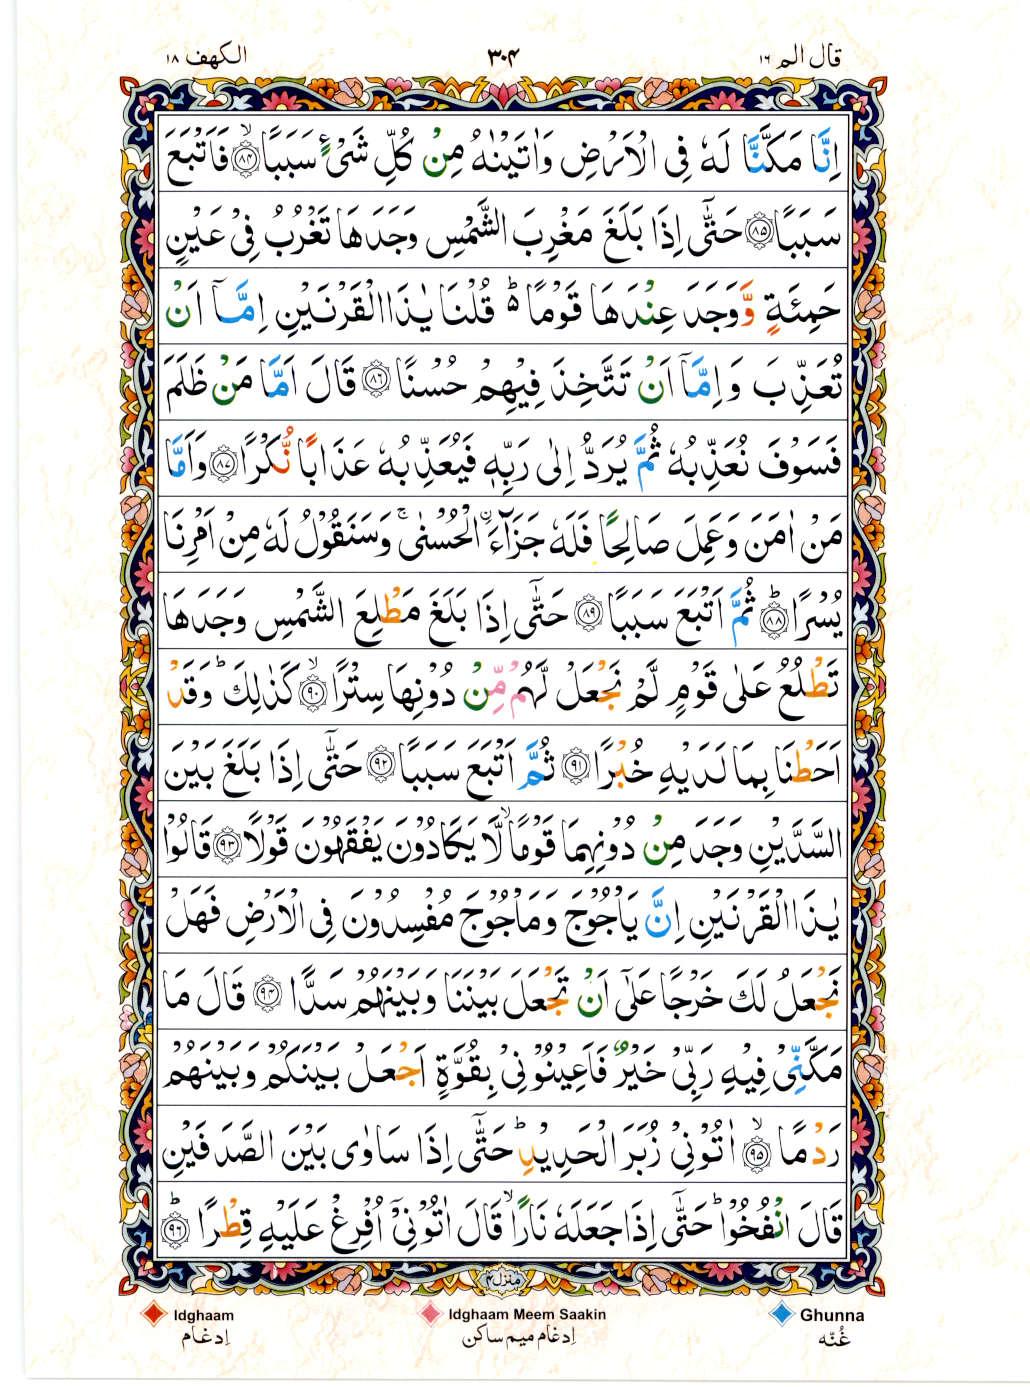 الكهف ١٨ ٣٠٤ قال الم ١٦
اِنَّا مَكَّنَّا لَهٗ فِی الْاَرْضِ وَاٰتَیْنٰهُ مِنْ كُلِّ شَیْءٍ سَبَبًاۙ ﴿٨٤﴾ فَاَتْبَعَ
سَبَبًا ﴿٨٥﴾ حَتّٰۤی اِذَا بَلَغَ مَغْرِبَ الشَّمْسِ وَجَدَهَا تَغْرُبُ فِیْ عَیْنٍ
حَمِئَةٍ وَّوَجَدَ عِنْدَهَا قَوْمًا ؕ قُلْنَا یٰذَا الْقَرْنَیْنِ اِمَّاۤ اَنْ
تُعَذِّبَ وَاِمَّاۤ اَنْ تَتَّخِذَ فِیْهِمْ حُسْنًا ﴿٨٦﴾ قَالَ اَمَّا مَنْ ظَلَمَ
فَسَوْفَ نُعَذِّبُهٗ ثُمَّ یُرَدُّ اِلٰی رَبِّهٖ فَیُعَذِّبُهٗ عَذَابًا نُّكْرًا ﴿٨٧﴾ وَاَمَّا
مَنْ اٰمَنَ وَعَمِلَ صَالِحًا فَلَهٗ جَزَآءَ اۨلْحُسْنٰی ۚ وَسَنَقُوْلُ لَهٗ مِنْ اَمْرِنَا
یُسْرًا ؕ ﴿٨٨﴾ ثُمَّ اَتْبَعَ سَبَبًا ﴿٨٩﴾ حَتّٰۤی اِذَا بَلَغَ مَطْلِعَ الشَّمْسِ وَجَدَهَا
تَطْلُعُ عَلٰی قَوْمٍ لَّمْ نَجْعَلْ لَّهُمْ مِّنْ دُوْنِهَا سِتْرًاۙ ﴿٩٠﴾ كَذٰلِكَ ؕ وَقَدْ
اَحَطْنَا بِمَا لَدَیْهِ خُبْرًا ﴿٩١﴾ ثُمَّ اَتْبَعَ سَبَبًا ﴿٩٢﴾ حَتّٰۤی اِذَا بَلَغَ بَیْنَ
السَّدَّیْنِ وَجَدَ مِنْ دُوْنِهِمَا قَوْمًاۙ لَّا یَكَادُوْنَ یَفْقَهُوْنَ قَوْلًا ﴿٩٣﴾ قَالُوْا
یٰذَا الْقَرْنَیْنِ اِنَّ یَاْجُوْجَ وَمَاْجُوْجَ مُفْسِدُوْنَ فِی الْاَرْضِ فَهَلْ
نَجْعَلُ لَكَ خَرْجًا عَلٰۤی اَنْ تَجْعَلَ بَیْنَنَا وَبَیْنَهُمْ سَدًّا ﴿٩٤﴾ قَالَ مَا
مَكَّنِّیْ فِیْهِ رَبِّیْ خَیْرٌ فَاَعِیْنُوْنِیْ بِقُوَّةٍ اَجْعَلْ بَیْنَكُمْ وَبَیْنَهُمْ
رَدْمًاۙ ﴿٩٥﴾ اٰتُوْنِیْ زُبَرَ الْحَدِیْدِ ؕ حَتّٰۤی اِذَا سَاوٰی بَیْنَ الصَّدَفَیْنِ
قَالَ انْفُخُوْا ؕ حَتّٰۤی اِذَا جَعَلَهٗ نَارًاۙ قَالَ اٰتُوْنِیْۤ اُفْرِغْ عَلَیْهِ قِطْرًا ؕ ﴿٩٦﴾
منزل ٤
Idghaam Idghaam Meem Saakin Ghunna
اِدغام اِدغام میم ساکن غُنّه